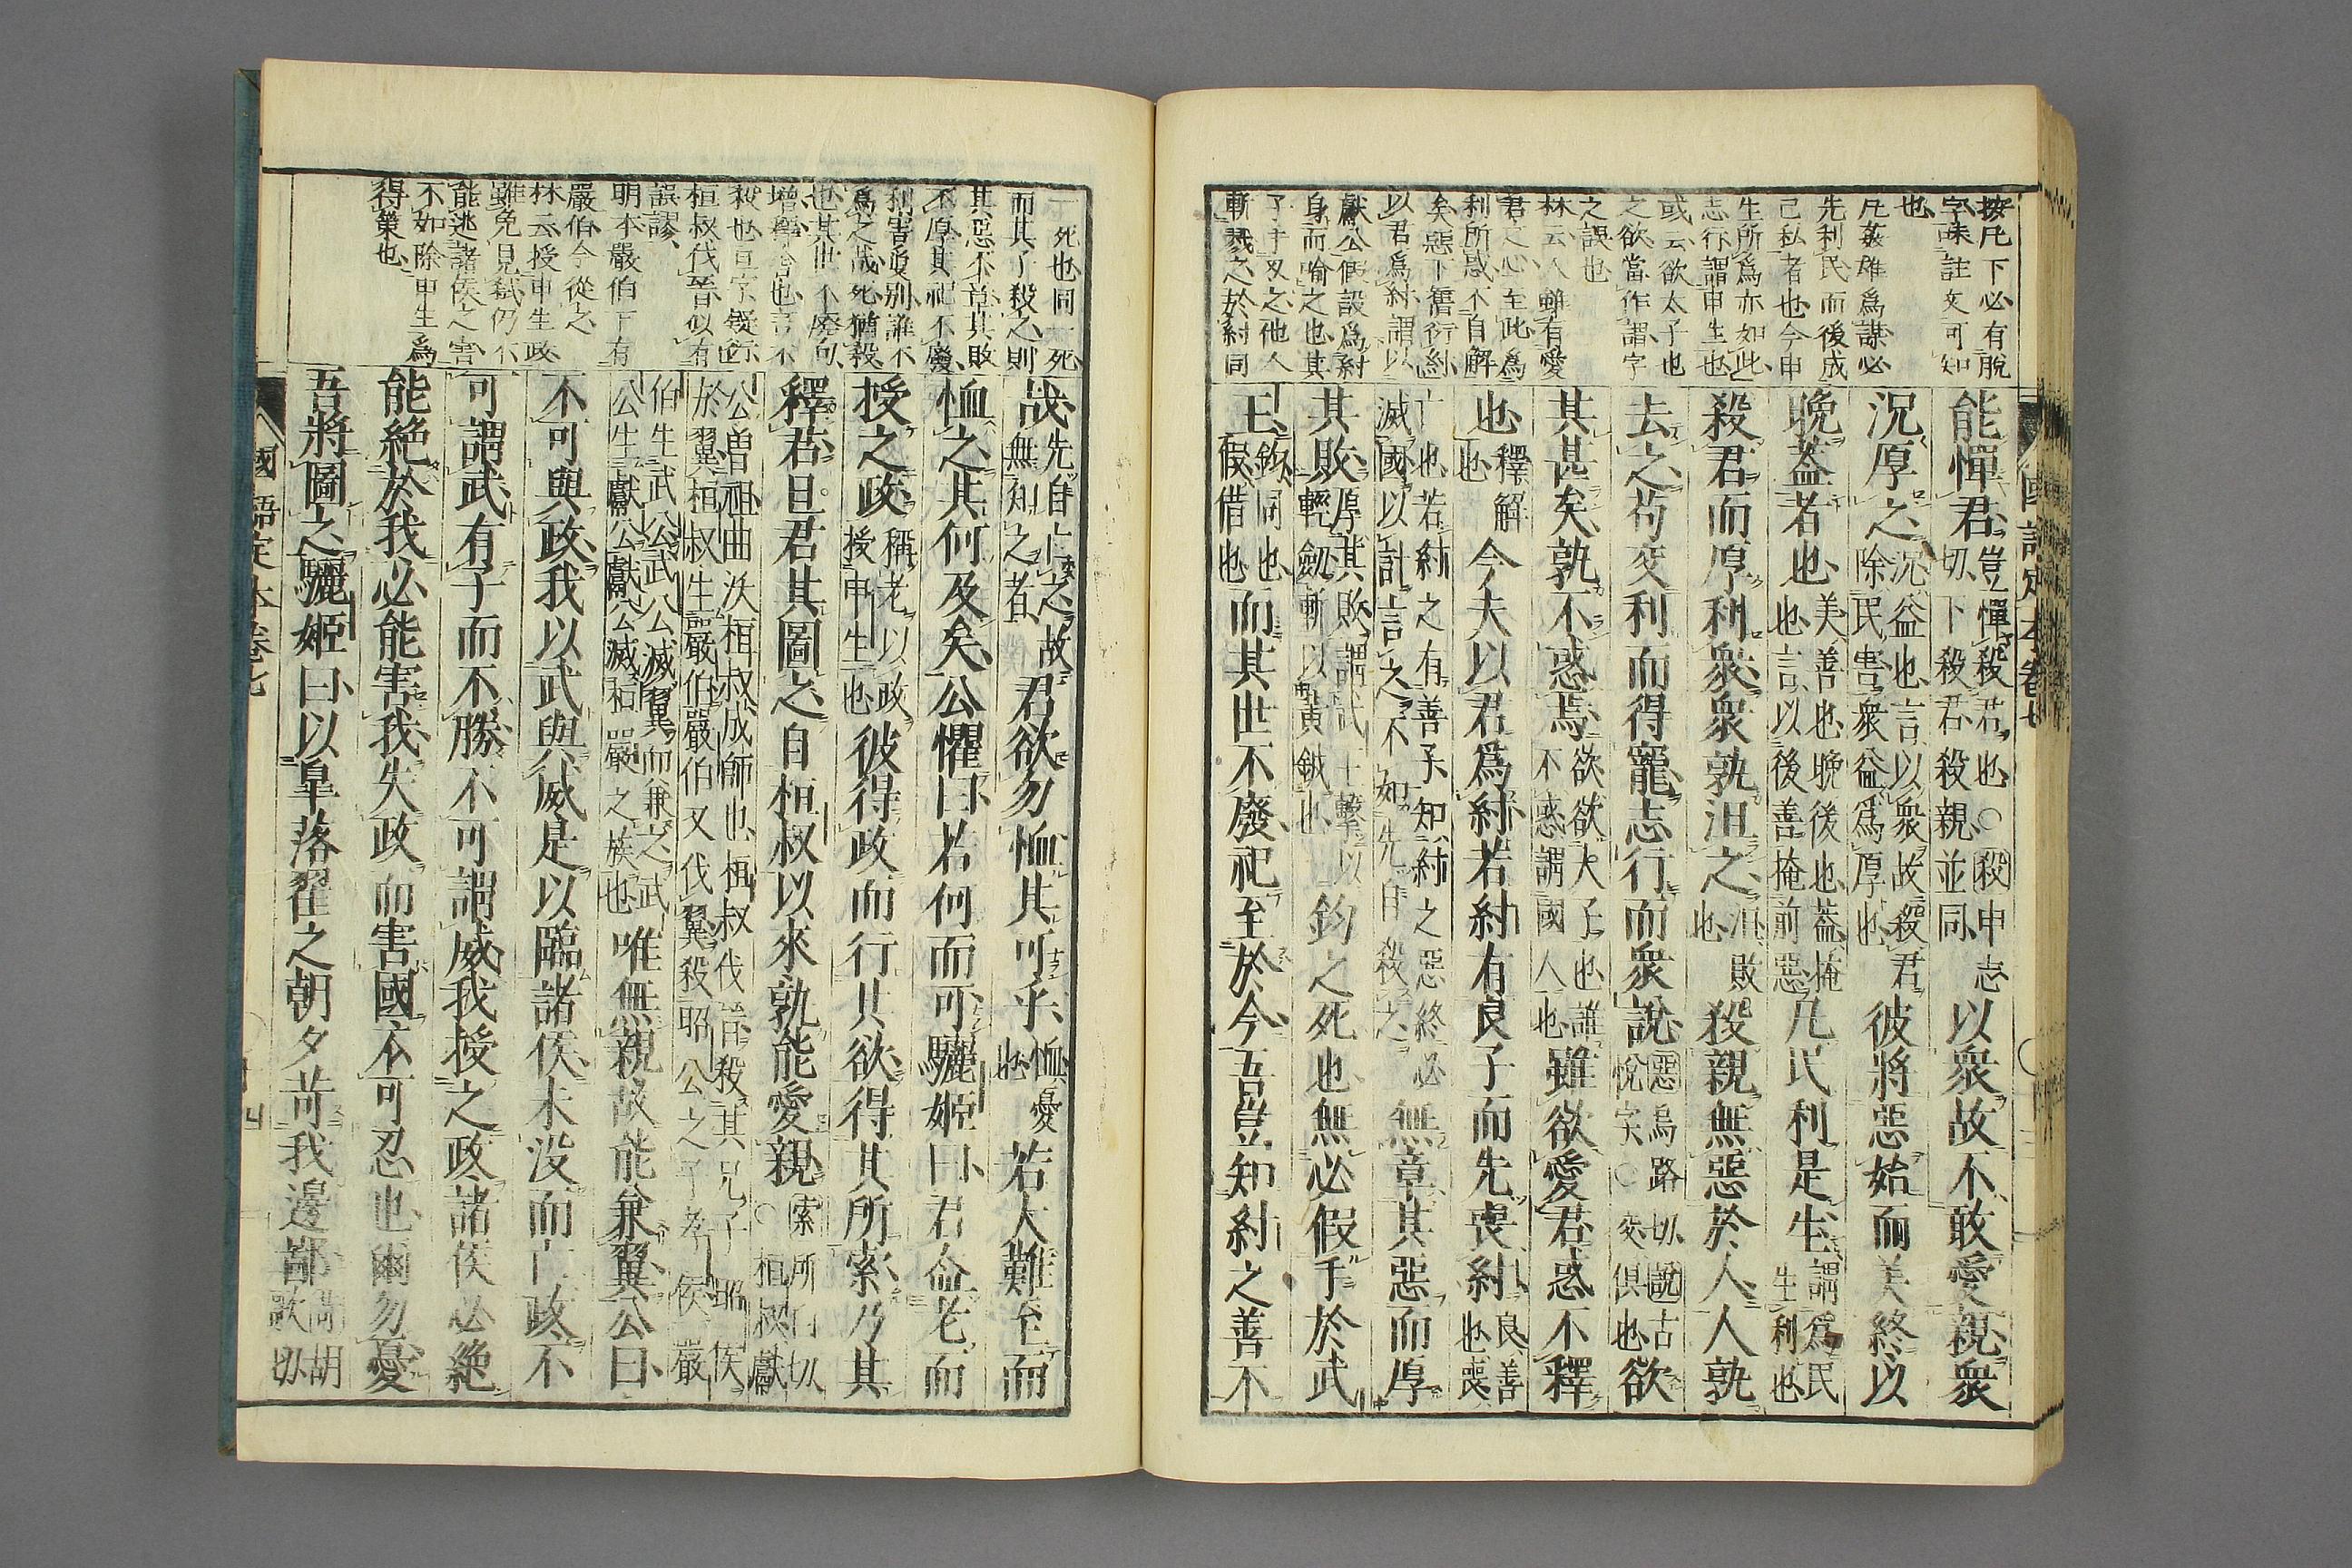 按凡下必有脫
字朱註文可知
也
凡姦雖爲謀必
先利民而後成
己私者也今申
生所爲亦如此
志行謂申生也
或云欲太子也
之欲當作謂字
之誤也
林云人雖有愛
君之心至此爲
利所惑不自解
矣惡下舊衍糾
以君爲紂謂以
獻公假設爲紂
身而喻之也其
手之他人
斬我之於紂同
能憚君豈憚殺君也○殺申志切下殺君殺親並同以衆故不敢愛親衆
況厚之況益也言以衆故殺君除民害衆益爲厚也彼將惡始而美終以
晚蓋者也美善也晚後也蓋掩也言以後善掩前惡凡民利是生謂爲民生利也
殺君而厚利衆衆孰沮之沮敗也殺親無惡於人人孰
去之苟交利而得寵志行而衆說惡烏路切說古悅字○交俱也欲
其甚矣孰不惑焉欲欲大子也誰不惑謂國人也雖欲愛君惑不釋
也釋解也今夫以君爲紂若紂有良子而先喪紂良善也喪
亡也若紂之有善子知紂之惡終必滅國以計言之不如先自殺之無章其惡而厚
其敗厚其敗謂武王擊以輕劒斬以黃鉞也鈞之死也無必假手於武
王鈞同也假借也而其世不廢祀至於今吾豈知紂之善不
國語定本卷七
一死也同一死
而其子殺之則
其惡不章其敗
不厚其祀不廢
利害愛别誰不
爲之哉死猶殺
也其世不廢句
增舉倉也言不
殺也且字疑衍
桓叔伐晉似有
誤謬
明本嚴伯下有
嚴伯今從之
林云授申生政
雖免見弑仍不
能逃諸侯之害
不如除申生爲
得策也
哉先自亡之故無知之者君欲勿恤其可乎恤憂也若大難至而
恤之其何及矣公懼曰若何而可驪姬曰君盍老而
授之政稱老以政授申生也彼得政而行其欲得其所索乃其
釋君且君其圖之自桓叔以來孰能愛親索所白切○桓叔獻
公曾祖曲沃桓叔成師也桓叔伐晉殺其兄子昭侯於翼桓叔生嚴伯嚴伯又伐翼殺昭公之子孝侯嚴
伯生武公武公滅翼而兼之武公生獻公獻公滅桓嚴之族也唯無親故能兼翼公曰
不可與政我以武與威是以臨諸侯未沒而亡政不
可謂武有子而不勝不可謂威我授之政諸侯必絶
能絶於我必能害我失政而害國不可忍也爾勿憂
吾將圖之驪姬曰以皐落翟之朝夕苛我邊鄙苛胡歌切
國語定本卷七